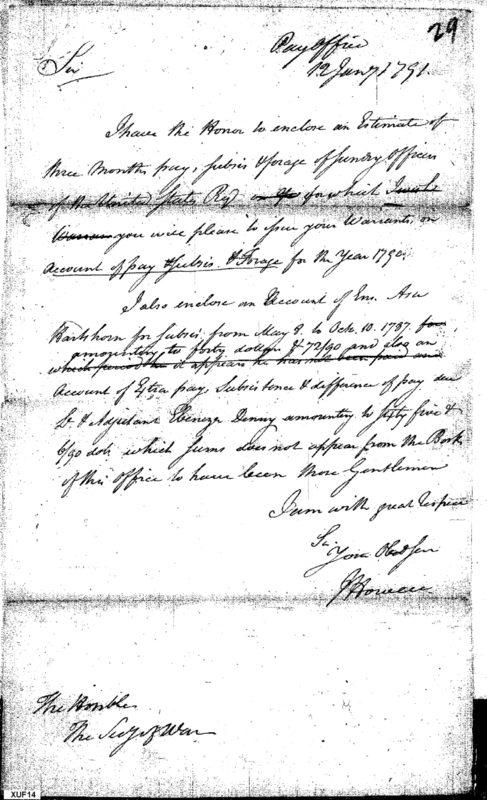 29
Pay Office
12 Jany 1791.
Sir
I have the Honor to enclose an Estimate of
three Months pay, subsis & forage of sundry Officers
of the United States Regt for which
Warrants you will please to issue your Warrants, on
Account of pay & subsis. & Forage for the Year 1790.
I also enclose an Account of Ens. Asa
Hartshorn for subsis. from May 8. to Octo. 10. 1787. for
amounting to forty dollars & 72/90 and also an
which period it appears he has not been paid and
Account of Extra pay Subsistence & difference of pay due
Lt. & Adjutant Ebenezer Denny amounting to sixty five &
6/90 dols. which sums does not appear from the Books
of this Office to have been those Gentlemen
I am with great respect
Sir
Your Obed Serv
J Howell
The Honble
The Secy of War
XUF14